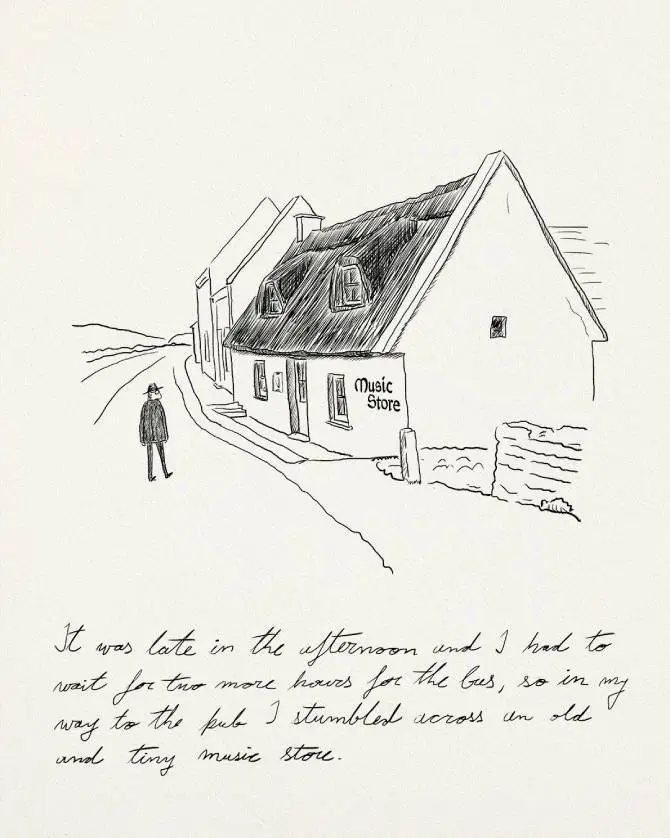 Music
Store
It was late in the afternoon and I had to
wait for two more hours for the bus, so in my
way to the pub I stumbled across an old
and tiny music store.